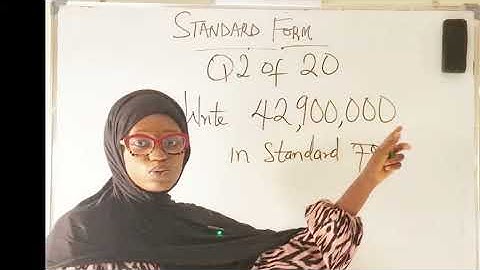 STANDARD FORM
Q2 of 20
Write 42,900,000
in Standard